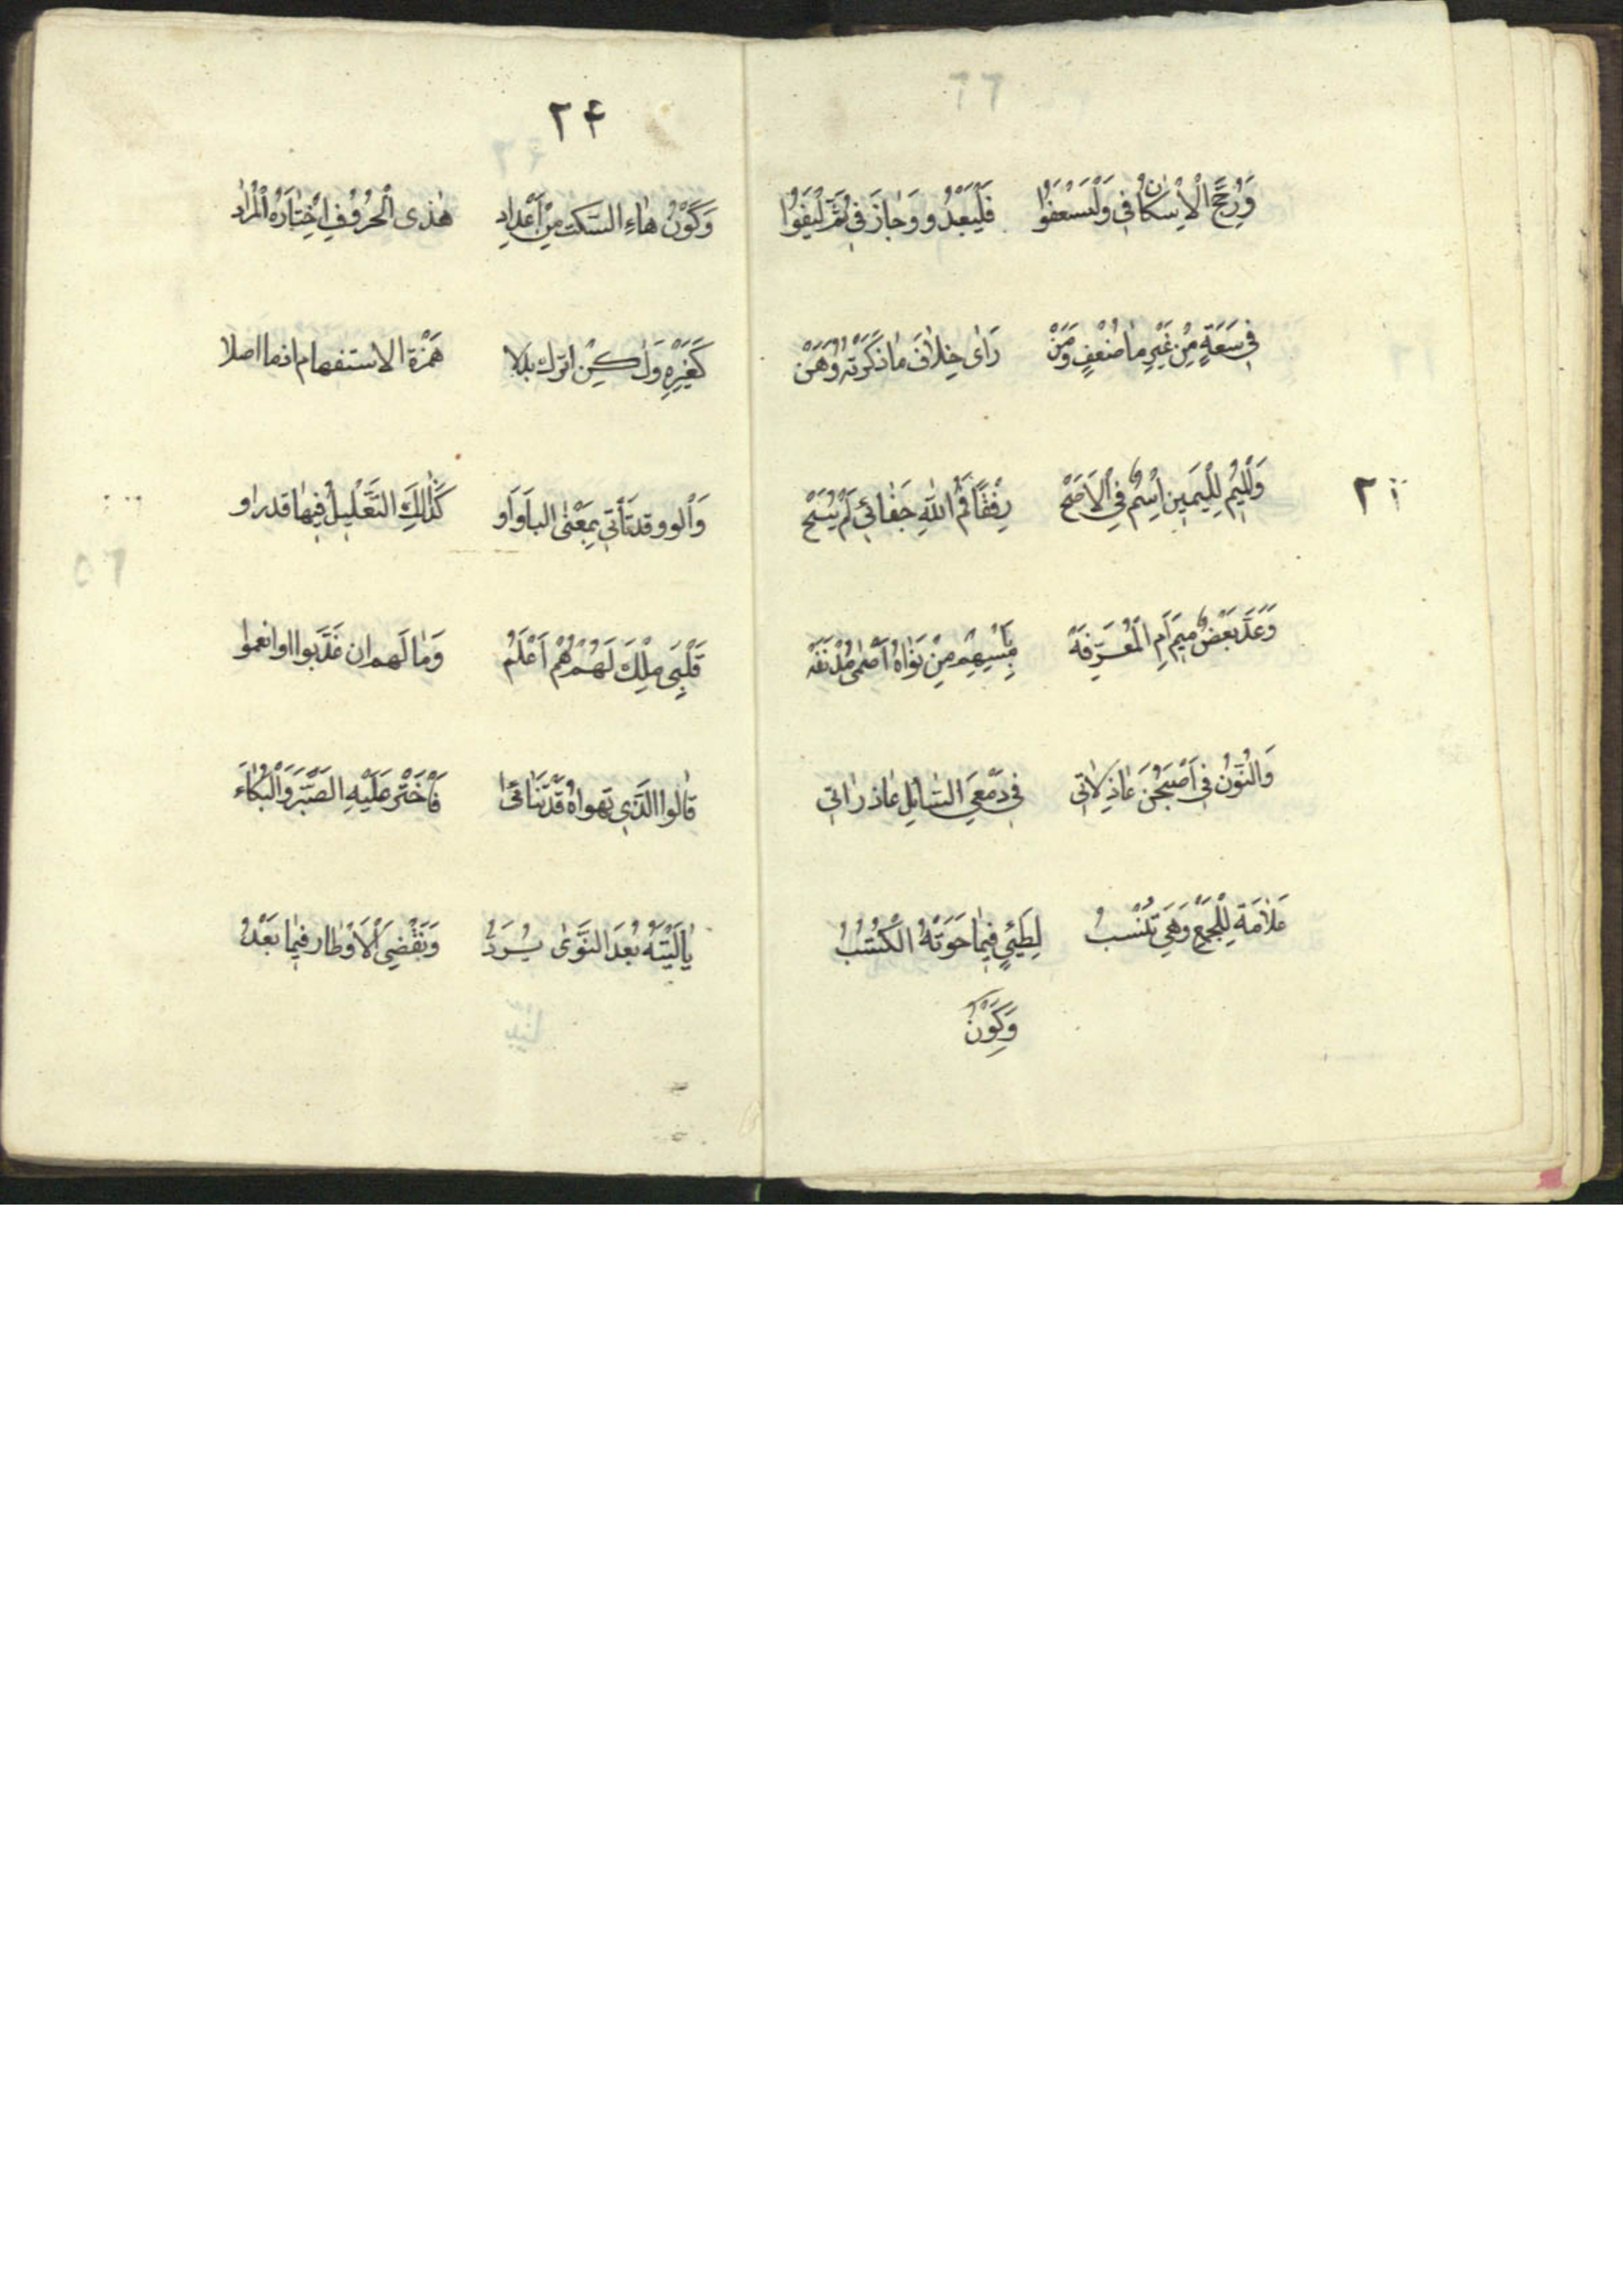 وَرُجِّحَ الْاِسْكٰانُ فِي وَلْتَسْعَفُوا فَلْيَعْبُدُوا وَجٰازَ فِي ثُمَّ لْيَفُوا
فِي سَعَةٍ مِنْ غَيْرِ مٰا ضُعْفٍ وَمَنْ رَاٰى خِلٰافَ مٰا ذَكَرْتُهُ وَهَنْ
وَالْمِيمُ لِلْيَمِينِ اِسْمٌ فِي الْاَصَحّْ رِفْقًا مُ اللهِ جَفٰائِي لَمْ يُبَحْ
وَعَدَّ بَعْضٌ مِيمَ اَمِ الْمُعَرِّفَةْ مِنْ نَوٰاهُ اَصْمٰى مُدْنَفَهْ
وَالنُّونُ فِي اَصْبَحْنَ عٰاذِلٰاتِي فِي دَمْعِيَ السّٰائِلِ عٰاذِرٰاتِي
عَلٰامَةً لِلْجَمْعِ وَهْيَ تُنْسَبُ لِطَيِّئٍ فِيمٰا حَوَتْهُ الْكُتُبُ
وَكَوْنُ
٢٤
وَكَوْنُ هٰاءِ السَّكْتِ مِنْ اَعْدٰادِ هٰذِى الْحُرُوفِ اِخْتٰارَهُ الْمُرٰادِ
كَغَيْرِهِ وَلٰكِنْ اترك بلا هَمْزَة الاستفهام انما اصلا
وَالواو وقد تَأْتِي بِمَعْنَى البا وَاَو كَذٰلِكَ التَّعْلِيلُ فِيهٰا قد راو
قَلْبِىَ مِلْكٌ لَهُمْ هُمْ اَعْلَمُ وَمٰا لَهم ان عَذَّبوا او انعموا
قٰالُوا الَّذِي تهواهُ قَدْ تَنٰائىٰ فَاخْتَرْ عَلَيْهِ الصَّبْرَ وَالْبُكٰاءَ
يٰا لَيْتَهُ بُعَيْدَ النَّوٰى يُرَدُّ وَنَقْضِيَ الْاَوْطار فِيمٰا بَعْدُ